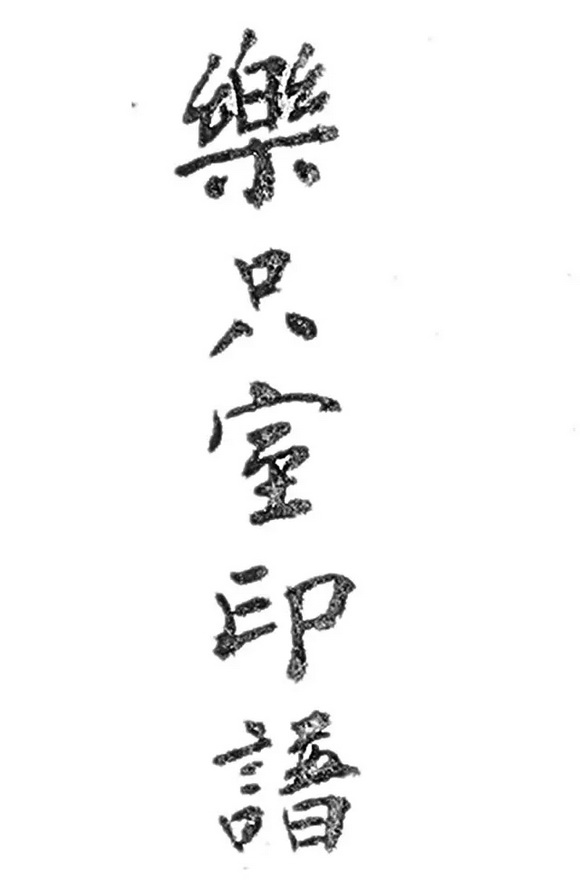 樂只室印譜